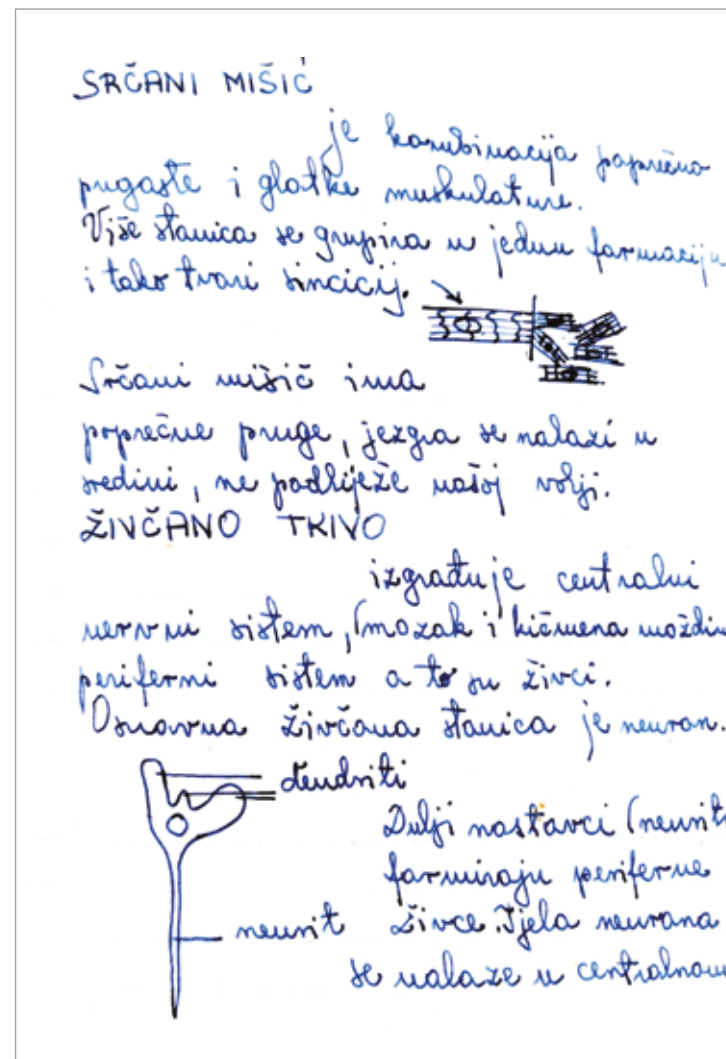 SRČANI MIŠIĆ
je kombinacija poprečno
prugaste i glatke muskulature.
Više stanica se grupira u jednu farmaciju
i tako tvori sincicij.
Srčani mišić ima
poprečne pruge, jezgra se nalazi u
sredini, ne podliježe našoj volji.
ŽIVČANO TKIVO
izgrađuje centralni
nervni sistem, (mozak i kičmena moždin
periferni sistem a to su živci.
Osnovna živčana stanica je neuron.
dendriti
Dulji nastavci (neurit
farmiraju periferne
neurit živce. Tjela neurona
se nalaze u centralnom